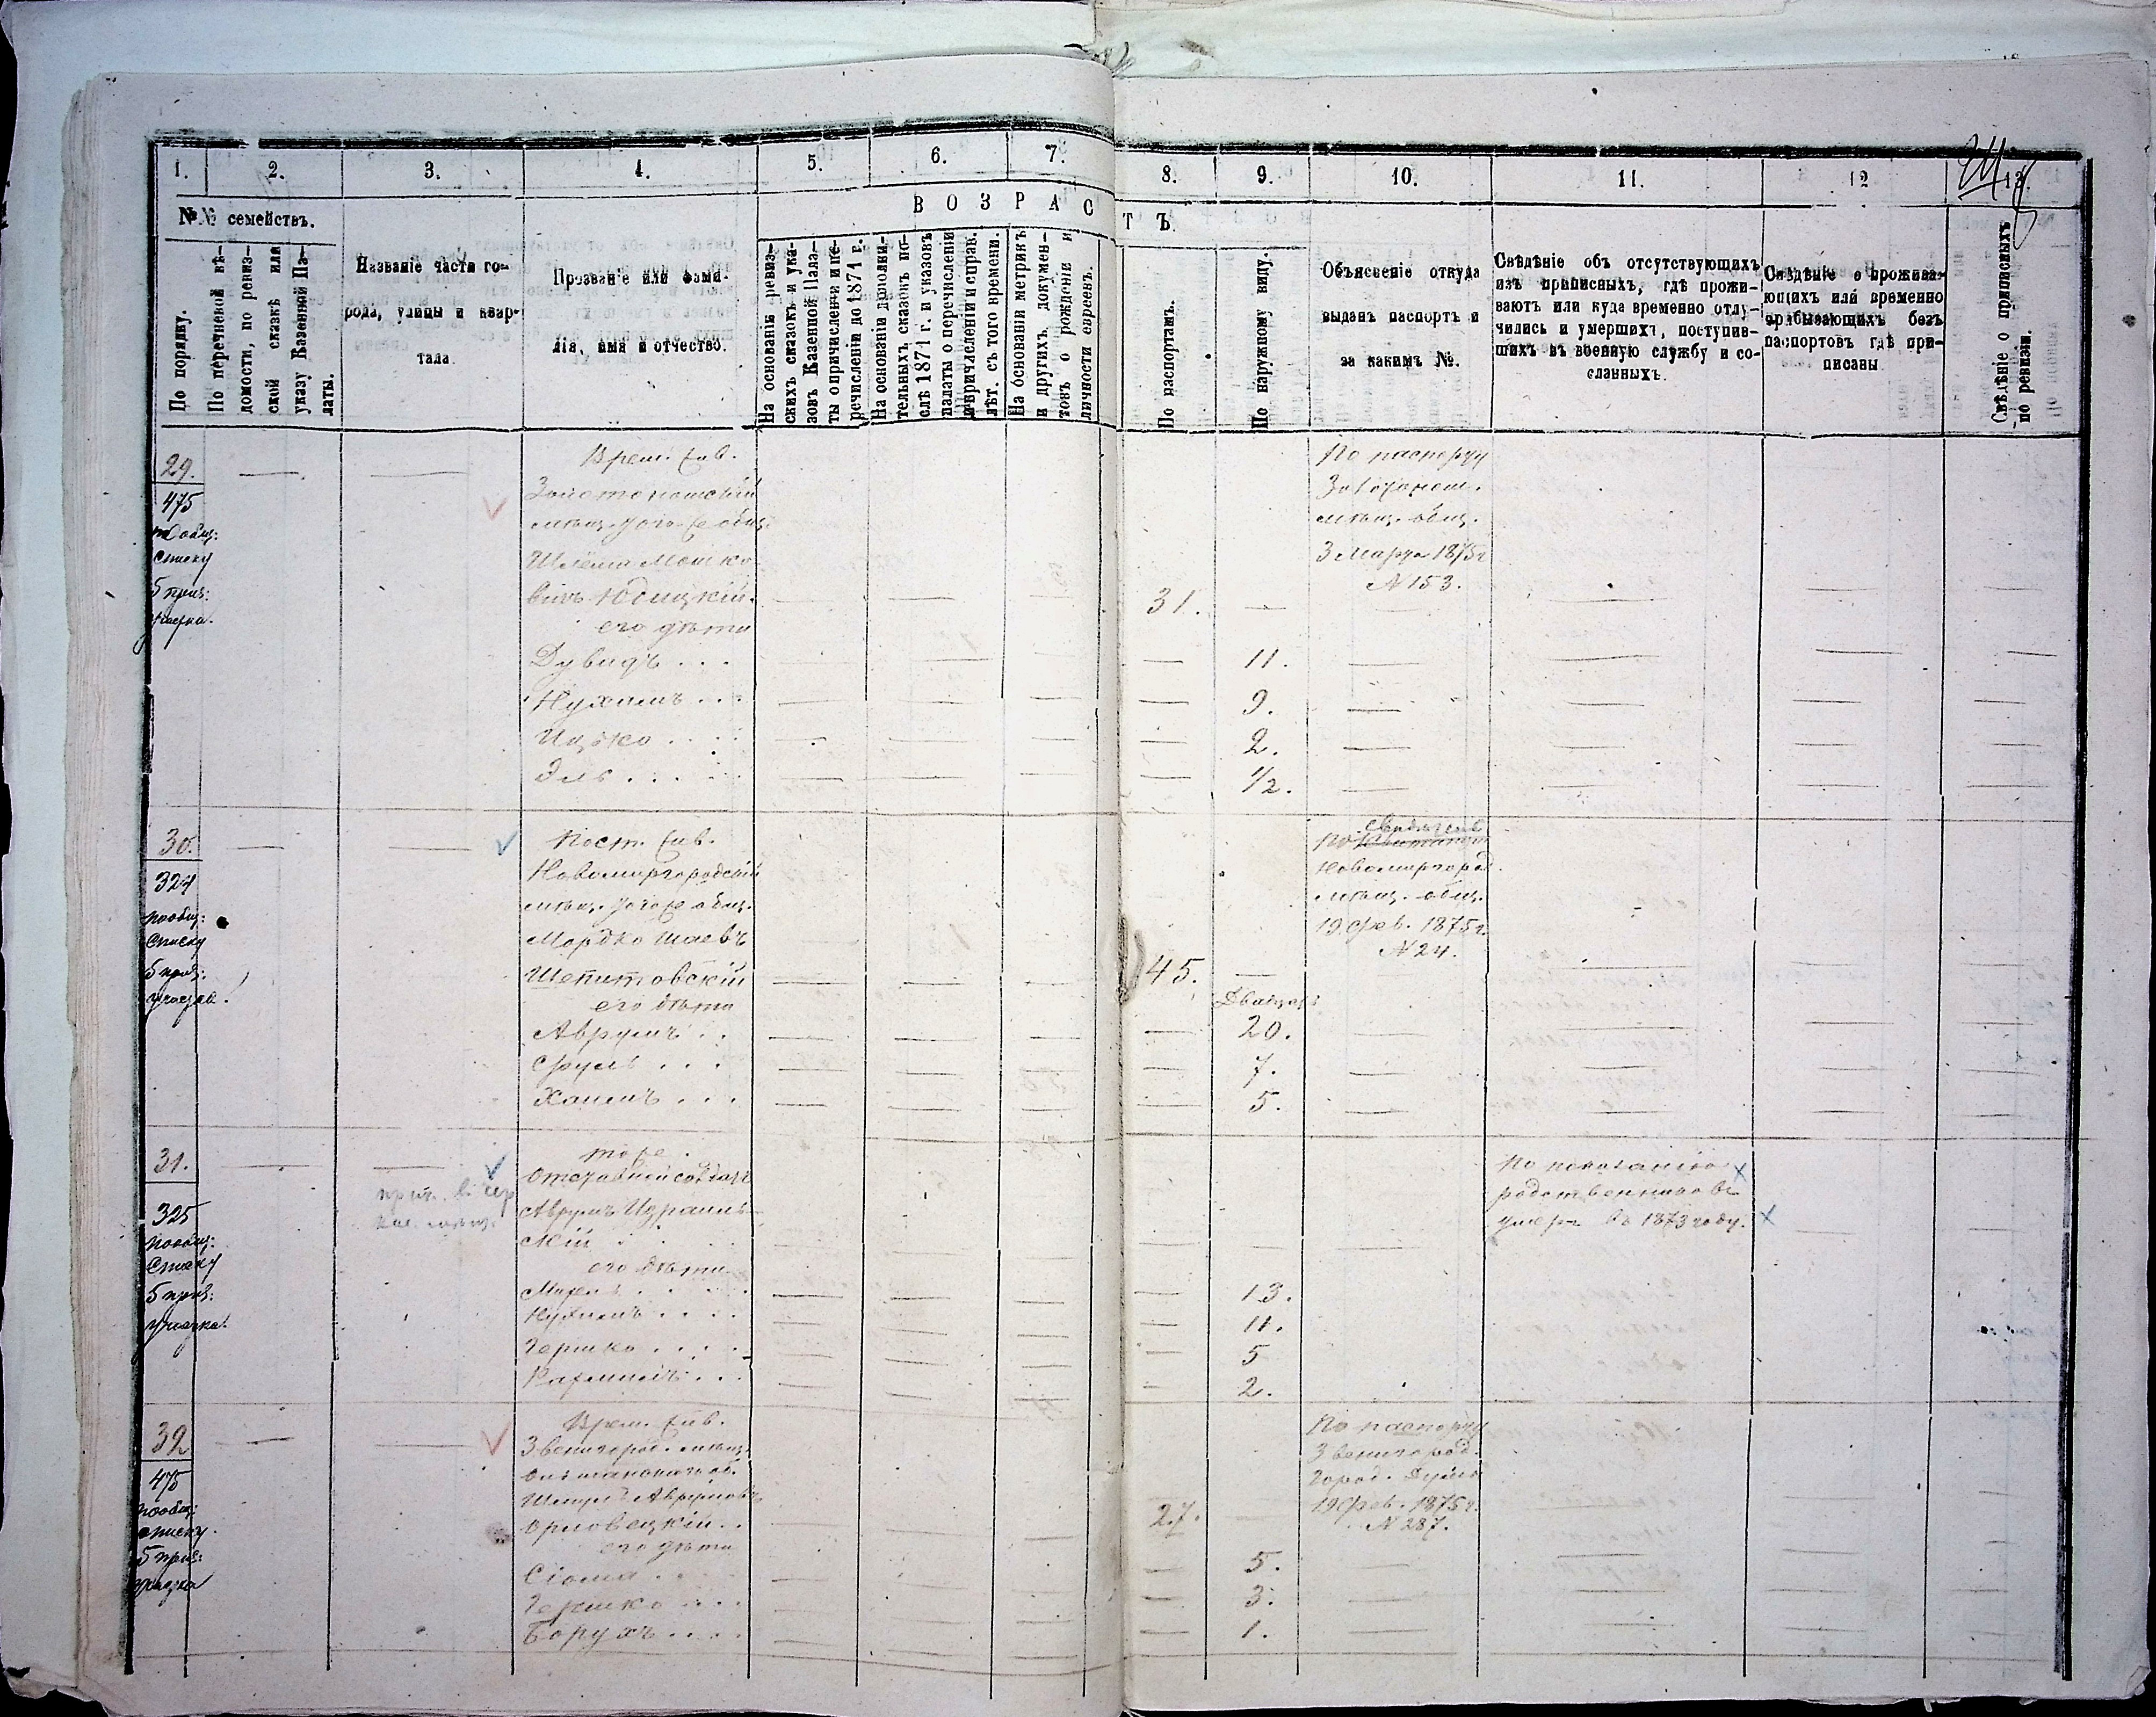 1. 2. 3. 4. 5. 6. 7. 8. 9. 10. 11. 12 13.
№№ семействъ.
ВОЗРАСТЪ.
По порядку.
По перечневой вѣ-
домости, по ревиз-
ской сказкѣ или
указу Казенной Па-
латы.
Названіе части го-
рода, улицы и квар-
тала
Прозваніе или фами-
лія, имя и отчество.
На основаніи ревиз-
скихъ сказокъ и ука-
зовъ Казенной Пала-
ты о причисленіи и пе-
речисленіи до 1871 г.
На основаніи дополни-
тельныхъ сказокъ по-
слѣ 1871 г. и указовъ
палаты о перечисленіи
и причисленіи и справ.
лѣт. съ того времени.
На основаніи метрикъ
и другихъ докумен-
товъ о рожденіи и
личности евреевъ.
По паспортамъ.
По наружному виду.
Объясненіе откуда
выданъ паспортъ и
за какимъ №.
Свѣдѣніе объ отсутствующихъ
изъ приписныхъ, гдѣ прожи-
ваютъ или куда временно отлу-
чились и умершихъ, поступив-
шихъ въ военную службу и со-
сланныхъ.
Свѣдѣніе о прожива-
ющихъ или временно
прибывающихъ безъ
паспортовъ гдѣ при-
писаны
Свѣдѣніе о приписныхъ
по ревизіи.
29.
475
по общ:
списку
5 приз:
участка.
Врем.
Золотоношскій
мѣщ.
Шлёма Мошко-
вичъ Юдицкій.
31.
его дѣти
Дувидъ . . . 11.
Нухимъ . . . 9.
Ицко . . . . 2.
Эль . . . . 1/2.
По паспорту
Золотонош.
мѣщ. общ.
3 Марта 1875 г
№ 153.
30.
324
по общ:
списку
5 приз:
участка.
Пост.
Новомиргородскій
мѣщ.
Мордко Шаевъ
Шепитовскій
45.
его дѣти
Двадцать
Аврумъ . . 20.
Сруль . . . 7.
Хаимъ . . . 5.
свидѣтель
По
Новомиргород.
мѣщ. общ.
19 Фев. 1875 г.
№ 24.
31.
325
по общ:
списку
5 приз:
участка.
тоже.
Отставной солдатъ
Аврумъ Израиль-
скій
его дѣти
13.
Нухимъ . . . . 11.
Гершко . . . . 5
2.
По показанію
родственниковъ
умеръ въ 1873 году.
32
475
по общ:
списку.
5 приз:
участка
Врем.
Звенигород. мѣщ.
Шмуль Аврумовъ
Орловецкій . .
27.
его дѣти
Сіома . . 5.
Гершко . . . 3.
Борухъ . . . . 1.
По паспорту
Звенигород.
Город. Думы
19 Фев. 1875 г.
№ 287.